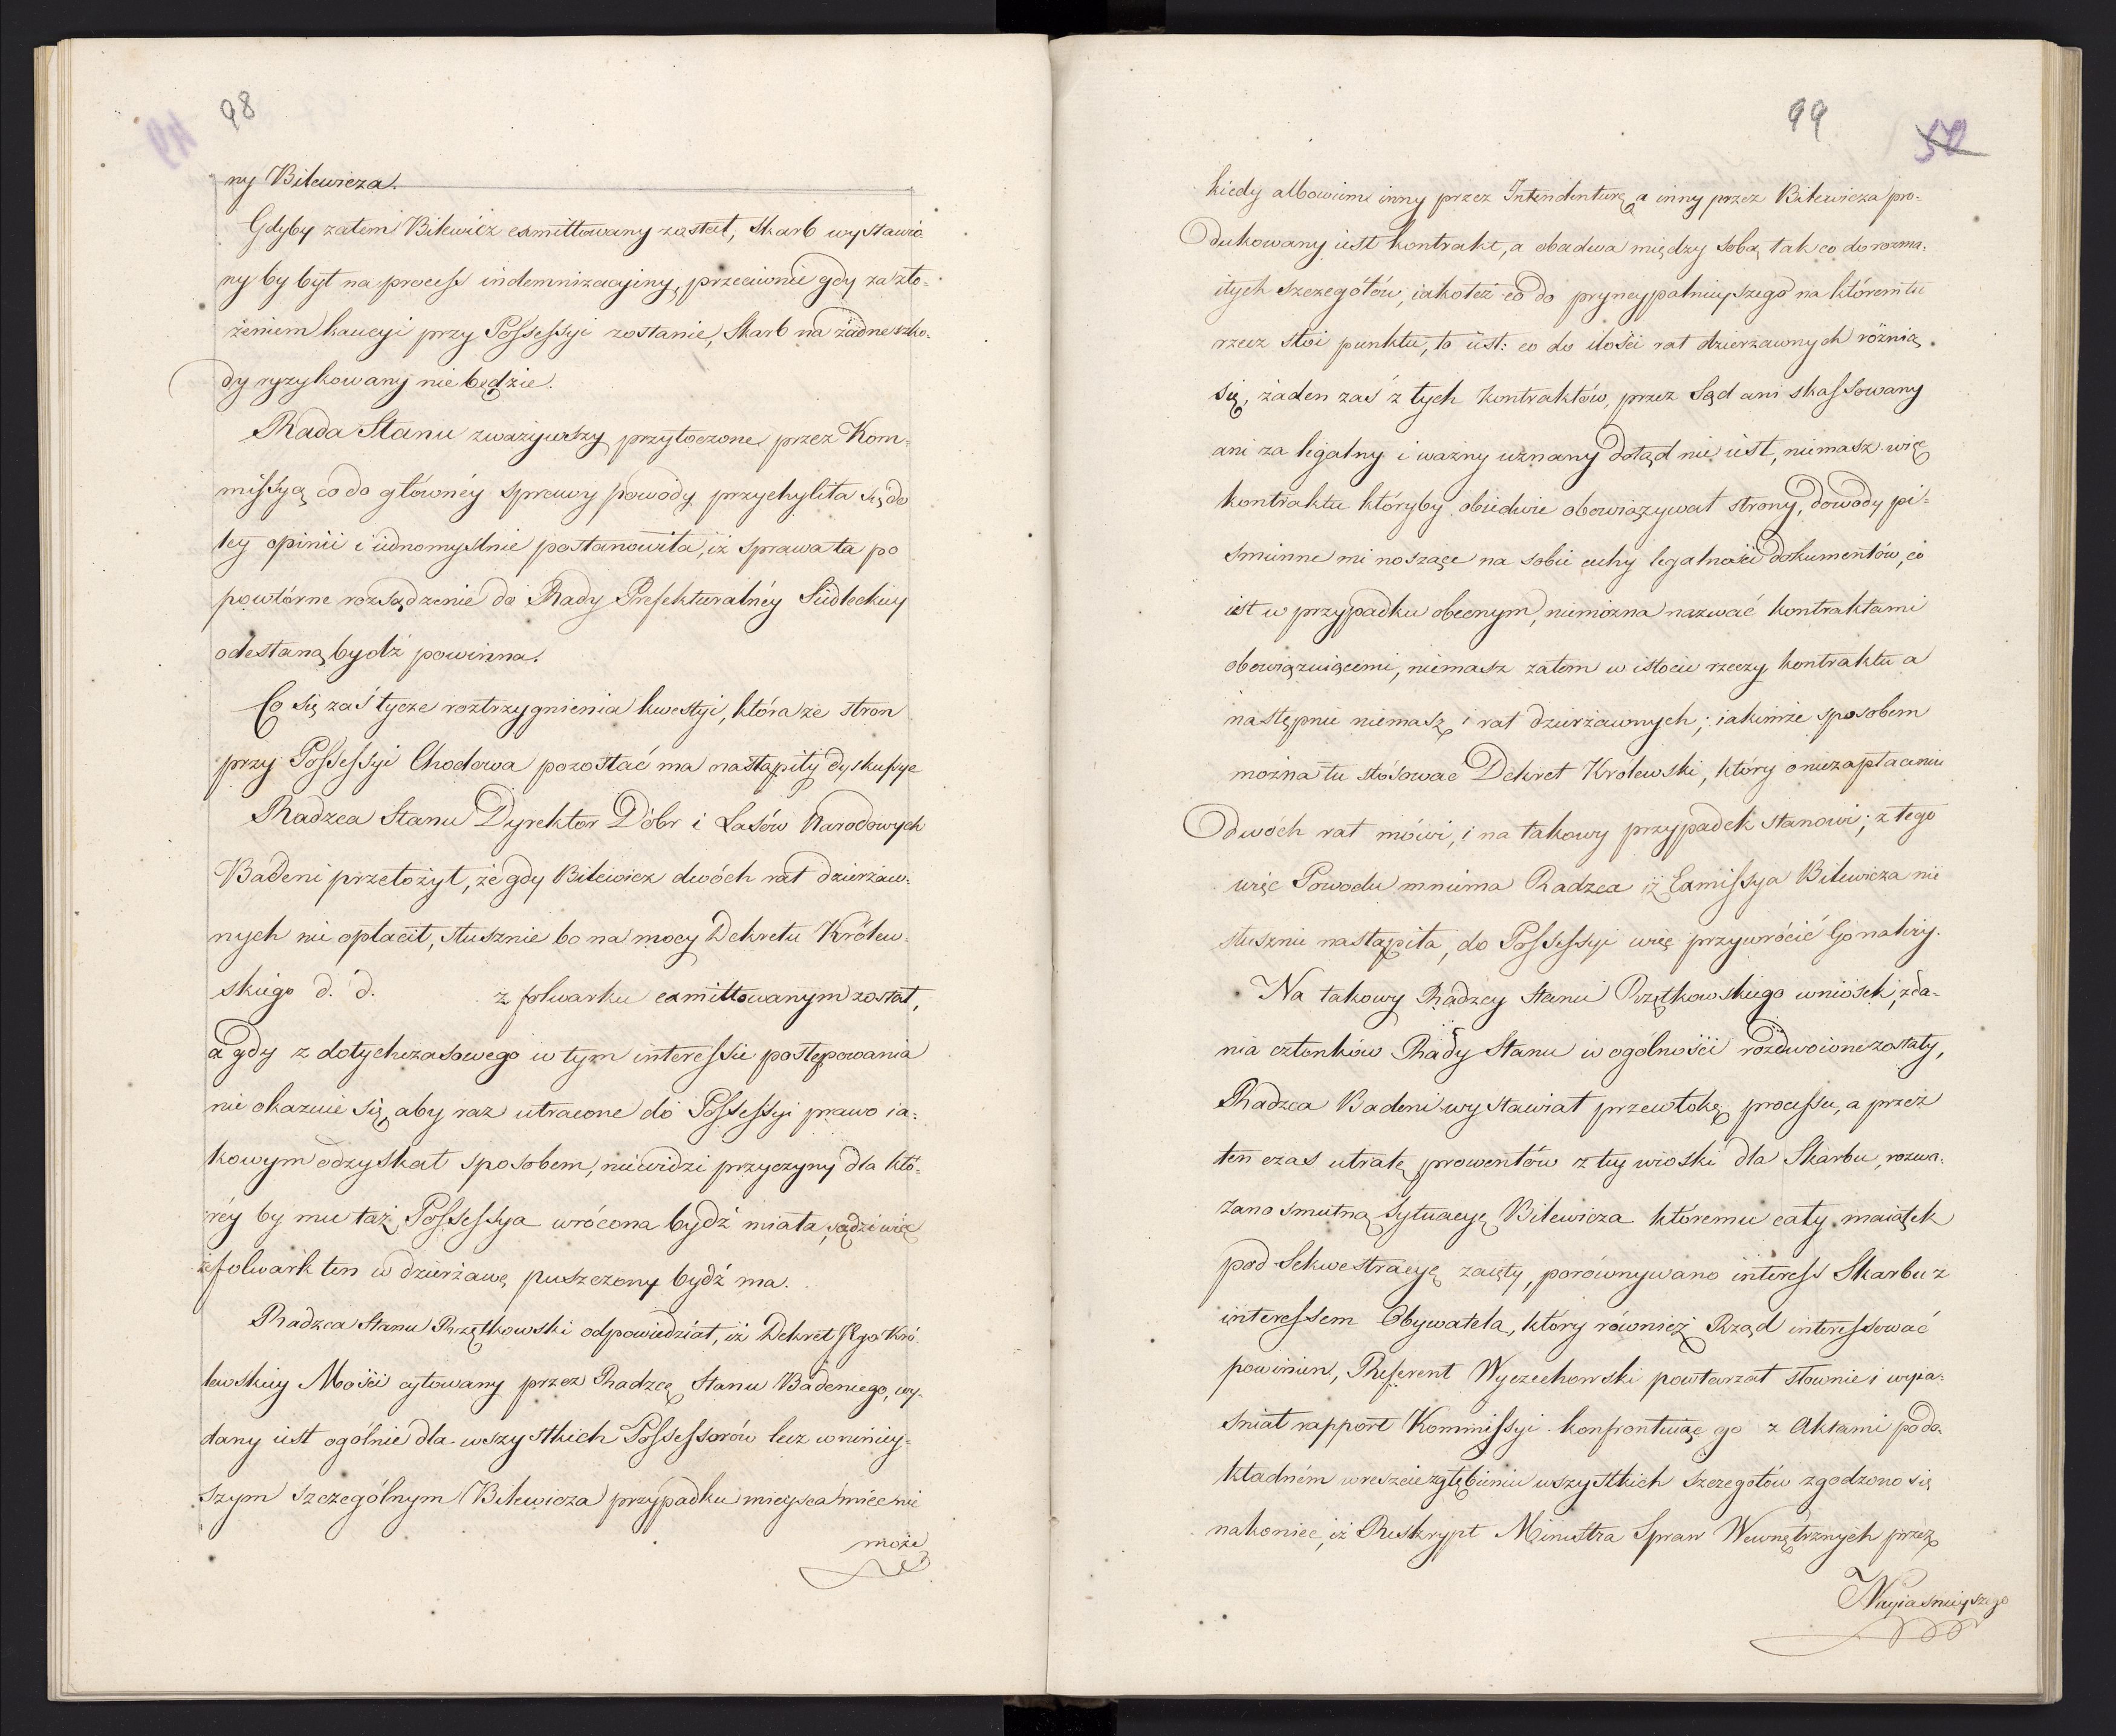 98
ny Bilewicza.
Gdyby zatem Bilewicz exmittowany został, Skarb wystawio-
ny by był na process indemnizacyiny, przeciwnie gdy za zło-
żeniem kaucyi przy Possessyi zostanie, Skarb na żadne szko-
dy ryzykowany nie będzie.
Rada Stanu zważywszy przytoczone przez Kom-
missyą co do główney sprawy powody przychyliła się do
tey opinii i iednomyślnie postanowiła, iż sprawa ta po
powtórne rozsądzenie do Rady Prefekturalnéy Siedleckiey
odesłaną bydź powinna.
Co się zaś tycze roztrzygnienia kwestyi, która ze stron
przy Possessyi Chodowa pozostać ma nastąpiły dyskussye
Radzca Stanu Dyrektor Dóbr i Lasów Narodowych
Badeni przełożył, że gdy Bilewicz dwóch rat dzierżaw-
nych nie opłacił, słusznie bo na mocy Dekretu Królew-
skiego d. d. z folwarku exmittowanym został,
a gdy z dotychczasowego w tym interessie postępowania
nie okazuie się, aby raz utracone do Possessyi prawo ia-
kowym odzyskał sposobem, niewidzi przyczyny dla któ-
réy by mu taż Possessya wrócona bydź miała, sądzi więc
iż folwark ten w dzierżawę puszczony bydź ma.
Radzca Stanu Rzętkowski odpowiedział, iż Dekret JEgo Kró-
lewskiey Mości cytowany przez Radzcę Stanu Badeniego, wy-
dany iest ogólnie dla wszystkich Possessorów lecz w niniey-
szym szczególnym Bilewicza przypadku mieysca mieć nie
może
99
50
kiedy albowiem inny przez Intendenturę, a inny przez Bilewicza pro-
dukowany iest kontrakt, a obadwa między sobą tak co do rozma-
itych szczegółów, iakoteż co do pryncypalnieyszego na którem tu
rzecz stoi punktu, to iest: co do ilości rat dzierżawnych różnią
się, żaden zaś z tych kontraktów, przez Sąd ani skassowany
ani za legalny i ważny uznany dotąd nie iest, niemasz więc
kontraktu któryby obiedwie obowiązywał strony, dowody pi-
smienne nie noszące na sobie cechy legalności dokumentów, co
iest w przypadku obecnym, niemożna nazwać kontraktami
obowiązuiącemi, niemasz zatem w istocie rzeczy kontraktu a
następnie niemasz i rat dzierżawnych; iakimże sposobem
można tu stósować Dekret Królewski, który o niezapłaceniu
dwóch rat mówi, i na takowy przypadek stanowi; z tego
więc Powodu mniema Radzca iż Exmissya Bilewicza nie
słusznie nastąpiła, do Possessyi więc przywrócić Go należy.
Na takowy Radzcy Stanu Rzętkowskiego wniosek, zda-
nia członków Rady Stanu w ogólności rozdwoione zostały,
Radzca Badeni wystawiał przewłokę processu, a przez
ten czas utratę prowentów z tey wioski dla Skarbu, rozwa-
żano smutną sytuacyę Bilewicza któremu cały maiątek
pod Sekwestracyę zaięty, porównywano interess Skarbu z
interessem Obywatela, który również Rząd interessować
powinien, Referent Wyczechowski powtarzał słownie i wyia-
sniał rapport Kommissyi konfrontuiąc go z Aktami po do-
kładném wreszcie zgłębieniu wszystkich szczegółów zgodzono się
nakoniec, iż Reskrypt Ministra Spraw Wewnętrznych przez
Nayiasnieyszego